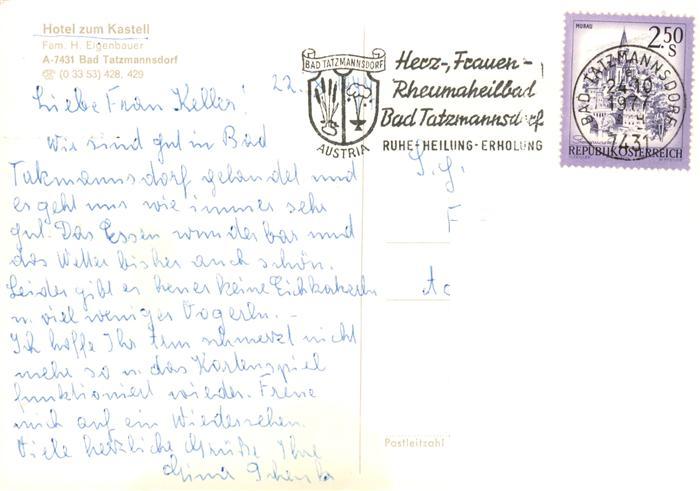 Hotel zum Kastell
Fam. H. Eigenbauer
A-7431 Bad Tatzmannsdorf
☏ (0 33 53) 428, 429
22.
Liebe Frau Keller!
Wir sind gut in Bad
Takmannsdorf gelandet und
es geht uns wie immer sehr
gut. Das Essen wunderbar und
das Wetter bisher auch schön.
Leider gibt es heuer keine Eichkatzerln
u. viel weniger Vogerln. -
Ich hoffe Ihr Arm schmerzt nicht
mehr so u. das Kartenspiel
funktioniert wieder. Freue
mich auf ein Wiedersehen.
Viele herzliche Grüße Ihre
BAD TATZMANNSDORF
AUSTRIA
Herz-, Frauen-
Rheumaheilbad
Bad Tatzmannsdorf
RUHE-HEILUNG-ERHOLUNG
MURAU
2.50
S
BAD TATZMANNSDORF
24-10
1977
7431
REPUBLIK ÖSTERREICH
S. g.
F
Ac
Postleitzahl